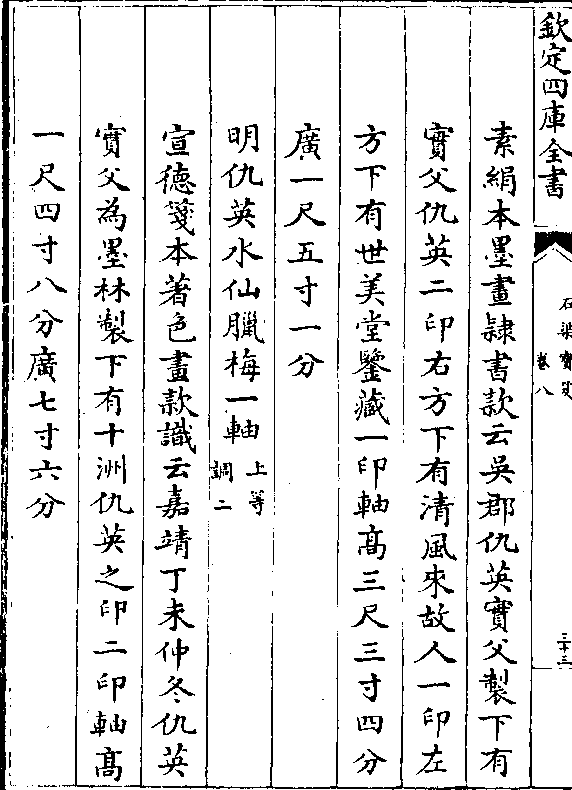 欽定四庫全書
石渠寶笈
卷八
三十三
素絹本墨畫隸書款云吳郡仇英實父製下有
實父仇英二印右方下有清風來故人一印左
方下有世美堂鑒藏一印軸高三尺三寸四分
廣一尺五寸一分
明仇英水仙臘梅一軸 上等 調二
宣德箋本著色畫款識云嘉靖丁未仲冬仇英
實父為墨林製下有十洲仇英之印二印軸高
一尺四寸八分廣七寸六分